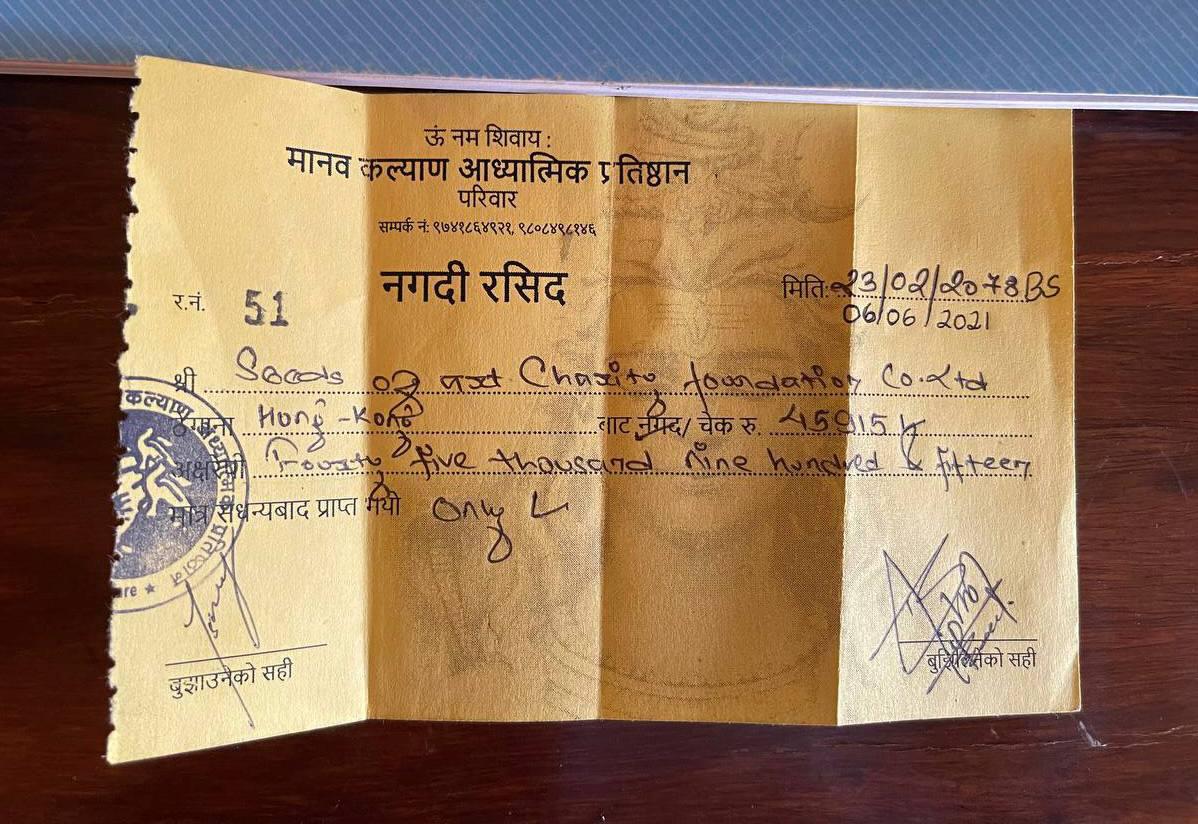 ऊं नम शिवाय :
मानव कल्याण आध्यात्मिक प्रतिष्ठान
परिवार
सम्पर्क नं: ९७४१८६४९२१, ९८०८४९८१४६
नगदी रसिद
मिति: 23/02/2078 BS
र.नं. 51
06/06/2021
श्री Seeds of art Charity foundation Co. Ltd
ठेगाना Hong-Kong बाट नगद/ चेक रु. 45915/-
अक्षरुपी Fourty five thousand nine hundred & fifteen
मात्र सधन्यबाद प्राप्त भयो Only
कल्याण
बुझाउनेको सही
बुझिलिनेको सही